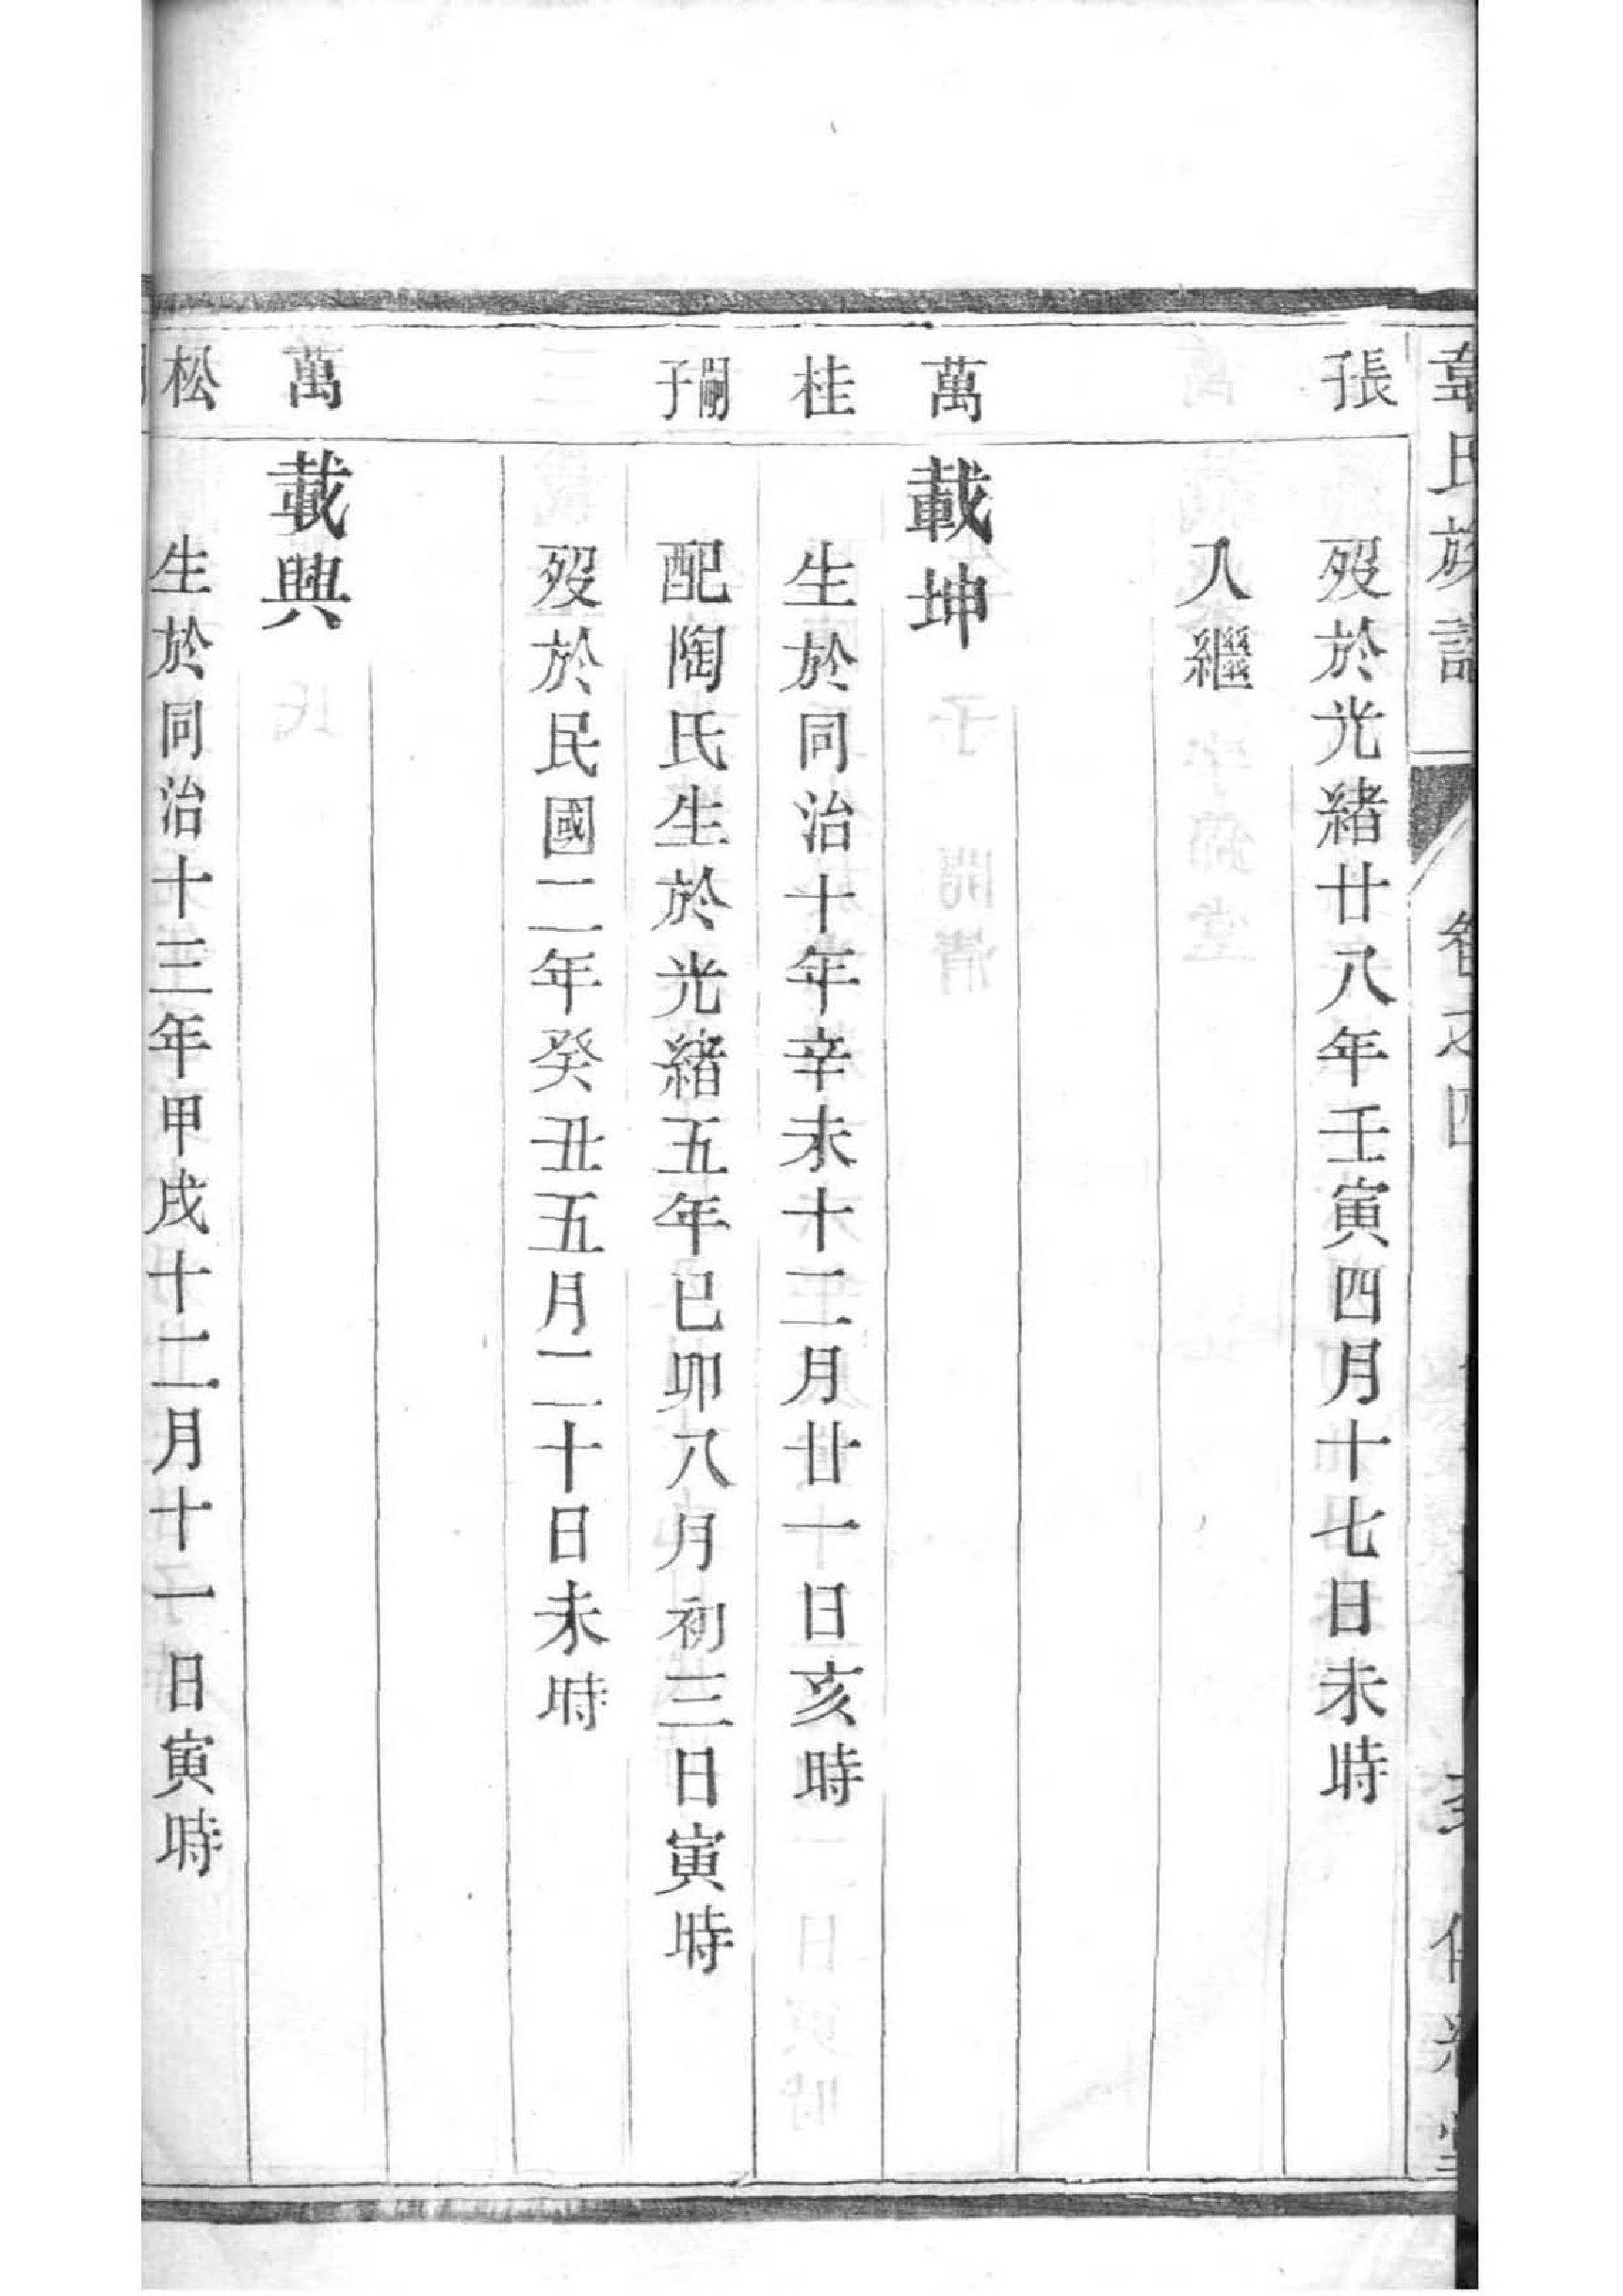 韋氏族譜 卷之四
張
歿於光緒廿八年壬寅四月十七日未時
人繼
萬
載坤
桂
生於同治十年辛未十二月廿一日亥時
嗣子
配陶氏生於光緒五年已卯八月初三日寅時
歿於民國二年癸丑五月二十日未時
萬
載興
松
生於同治十三年甲戌十二月十一日寅時